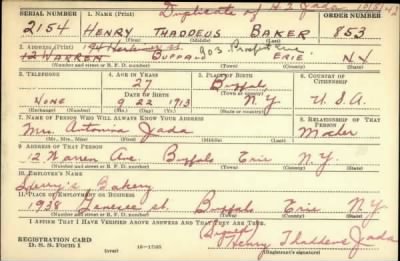 Duplicate of H. T. Jada 10/8/42
SERIAL NUMBER 1. NAME (Print) ORDER NUMBER
2154 HENRY THADDEUS BAKER 853
(First) (Middle) (Last)
2. ADDRESS (Print) 903
12 WARREN BUFFALO ERIE N.Y.
(Number and street or R. F. D. number) (Town) (County) (State)
3. TELEPHONE 4. AGE IN YEARS 5. PLACE OF BIRTH 6. COUNTRY OF CITIZENSHIP
27 Buffalo
NONE 9 22 1913 N.Y. U.S.A.
7. NAME OF PERSON WHO WILL ALWAYS KNOW YOUR ADDRESS 8. RELATIONSHIP OF THAT PERSON
Mrs. Antonina Jada Mother
(Mr., Mrs., Miss) (First) (Middle) (Last)
9. ADDRESS OF THAT PERSON
12 Warren Ave. Buffalo Erie N.Y.
(Number and street or R. F. D. number) (Town) (County) (State)
10. EMPLOYER'S NAME
Bakery
11. PLACE OF EMPLOYMENT OR BUSINESS
1938 Genesee St. Buffalo Erie N.Y.
(Number and street or R. F. D. number) (Town) (County) (State)
I AFFIRM THAT I HAVE VERIFIED ABOVE ANSWERS AND THAT THEY ARE TRUE.
REGISTRATION CARD
D. S. S. FORM 1 (over) 16—17105 Henry Thaddeus Jada
(Registrant's signature)